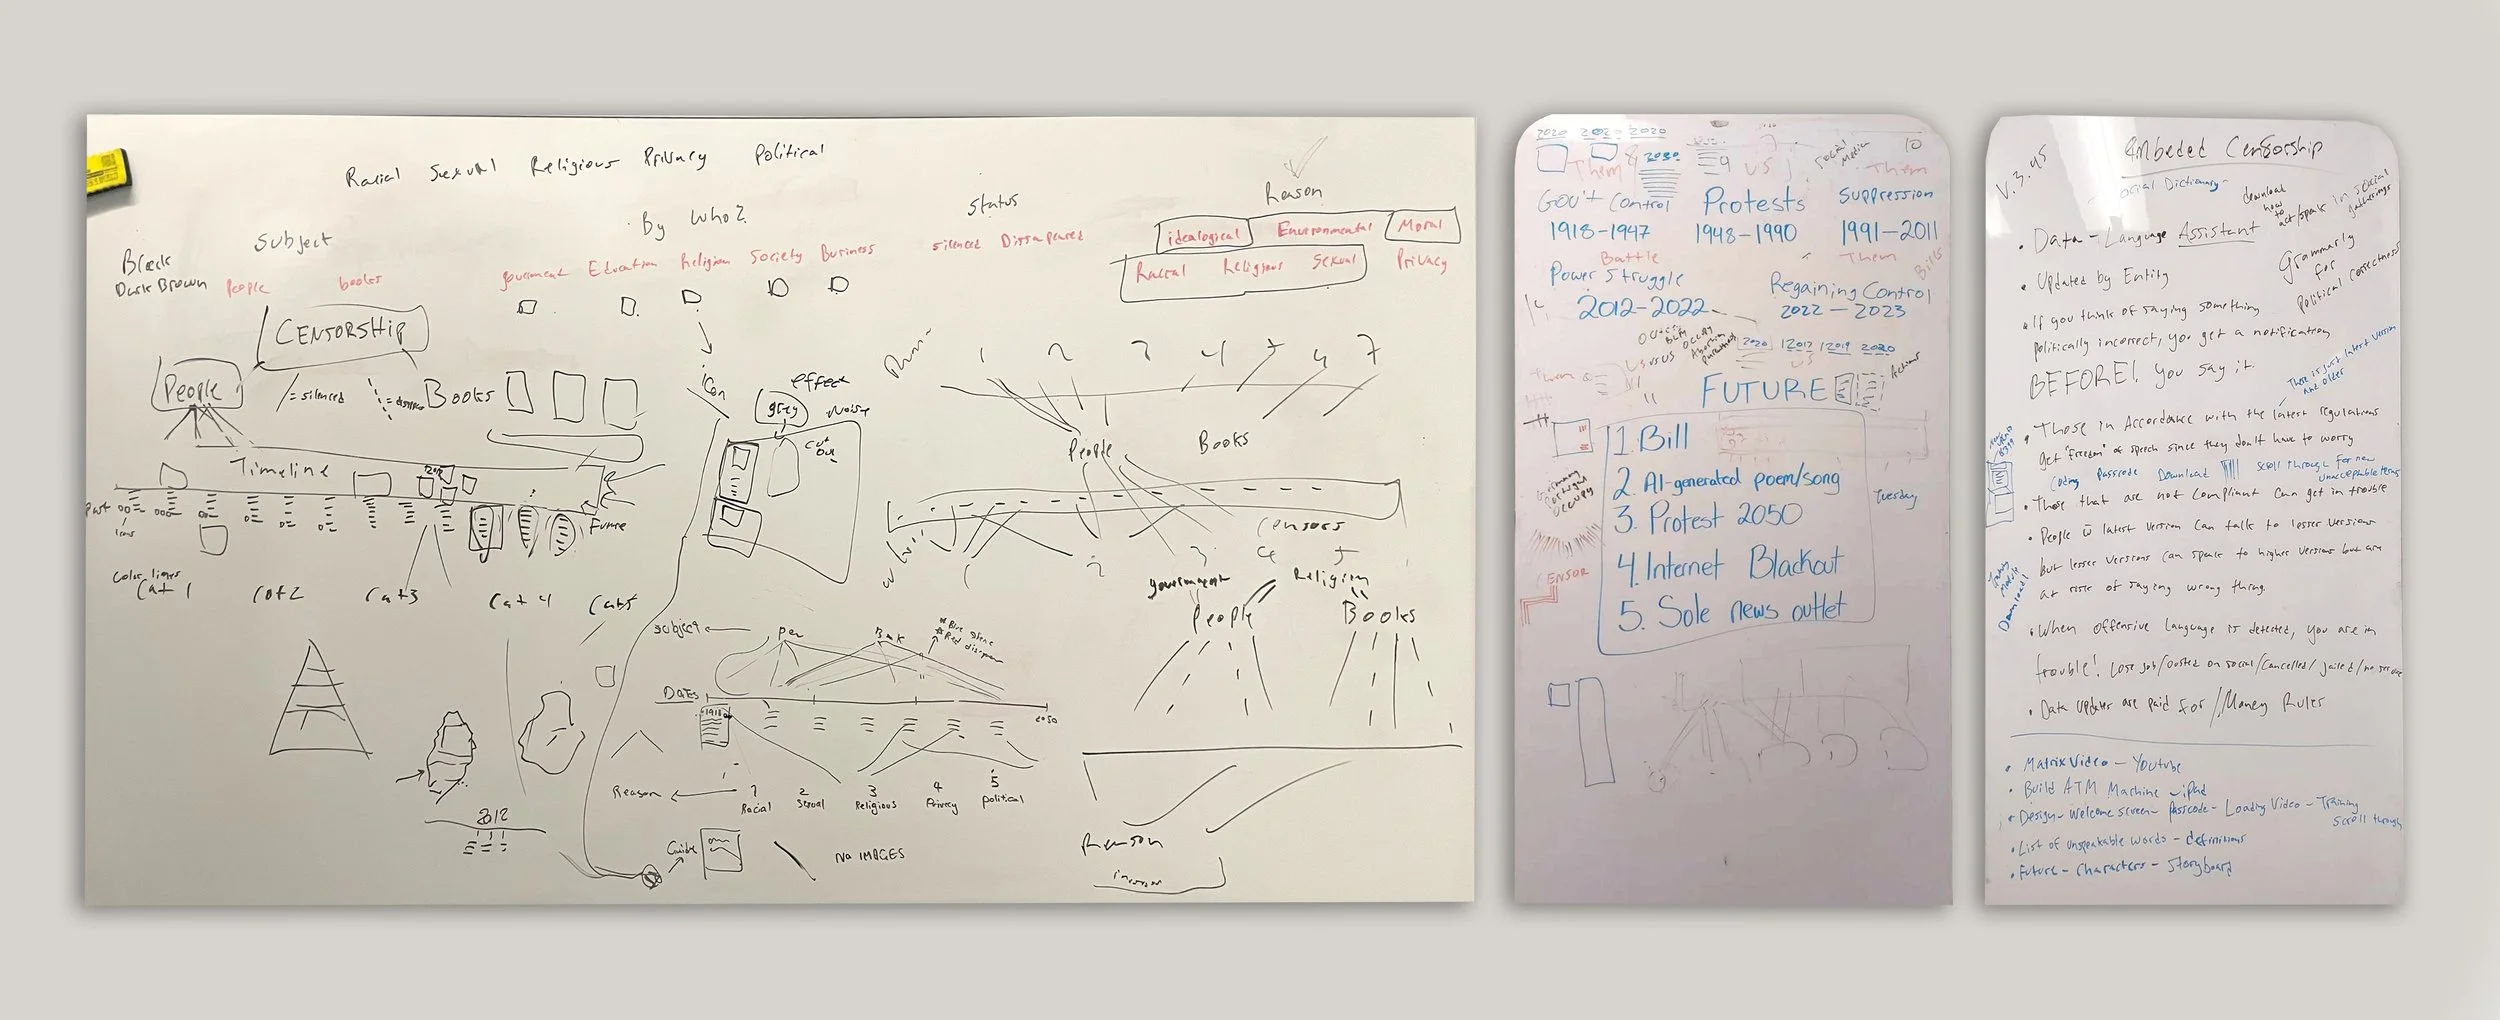 Racial Sexual Religious Privacy Political
Reason
Status
By Who?
Subject
Black
Dark Brown
People
books
government Education Religion Society Business
silenced Dissapeared
idealogical Environmental Moral
Racial Religious Sexual Privacy
CENSORSHIP
People
/ = silenced
Books
Timeline
2012
Past
Future
icons
Color lines
Cat 1
Cat 2
Cat 3
Cat 4
Cat 5
2012
icon
effect
grey
Noise
cut out
1 2 3 4 5 6 7
People
Books
Censors
1 2 3 4 5
government
Religion
People
Books
subject
per
Book
DATES
1918
2050
Reason
1 2 3 4 5
Racial Sexual Religious Privacy political
Guide
NO IMAGES
Reason
2020 2020 2020
2030
Them
US
Social Media
Them
10
Gov't Control
1918-1947
Protests
1948-1990
Suppression
1991-2011
Battle
Them
Bills
Power Struggle
2012-2022
Regaining Control
2022-2023
2020 2017 2019 2020
FUTURE
Actions
1. Bill
2. AI-generated poem/song
3. Protest 2050
4. Internet Blackout
5. Sole news outlet
Tuesday
Germany
Portugal
Occupy
CENSOR
V.3.45
Embeded Censorship
Social Dictionary
download how to act/speak in social gatherings
• Data-Language Assistant
Grammarly for Political correctness
• Updated by Entity
• If you think of saying something
politically incorrect, you get a notification
BEFORE! you say it.
There is just latest version and older
• Those in Accordance with the latest regulations
get "freedom" of speech since they don't have to worry
Coding Passcode Download Scroll through for new unacceptable terms
• Those that are not compliant can get in trouble
• People w latest version can talk to lesser versions
but lesser versions can speak to higher versions but are
at risk of saying wrong thing.
Training Module Download
• When offensive language is detected, you are in
trouble! Lose job/ousted on social/cancelled/jailed/no service
• Data updates are paid for // Money Rules
• Matrix Video - Youtube
• Build ATM Machine - ipad
• Design - Welcome screen - Passcode - Loading Video - Training
Scroll through
• List of unspeakable words - definitions
• Future - Characters - Storyboard